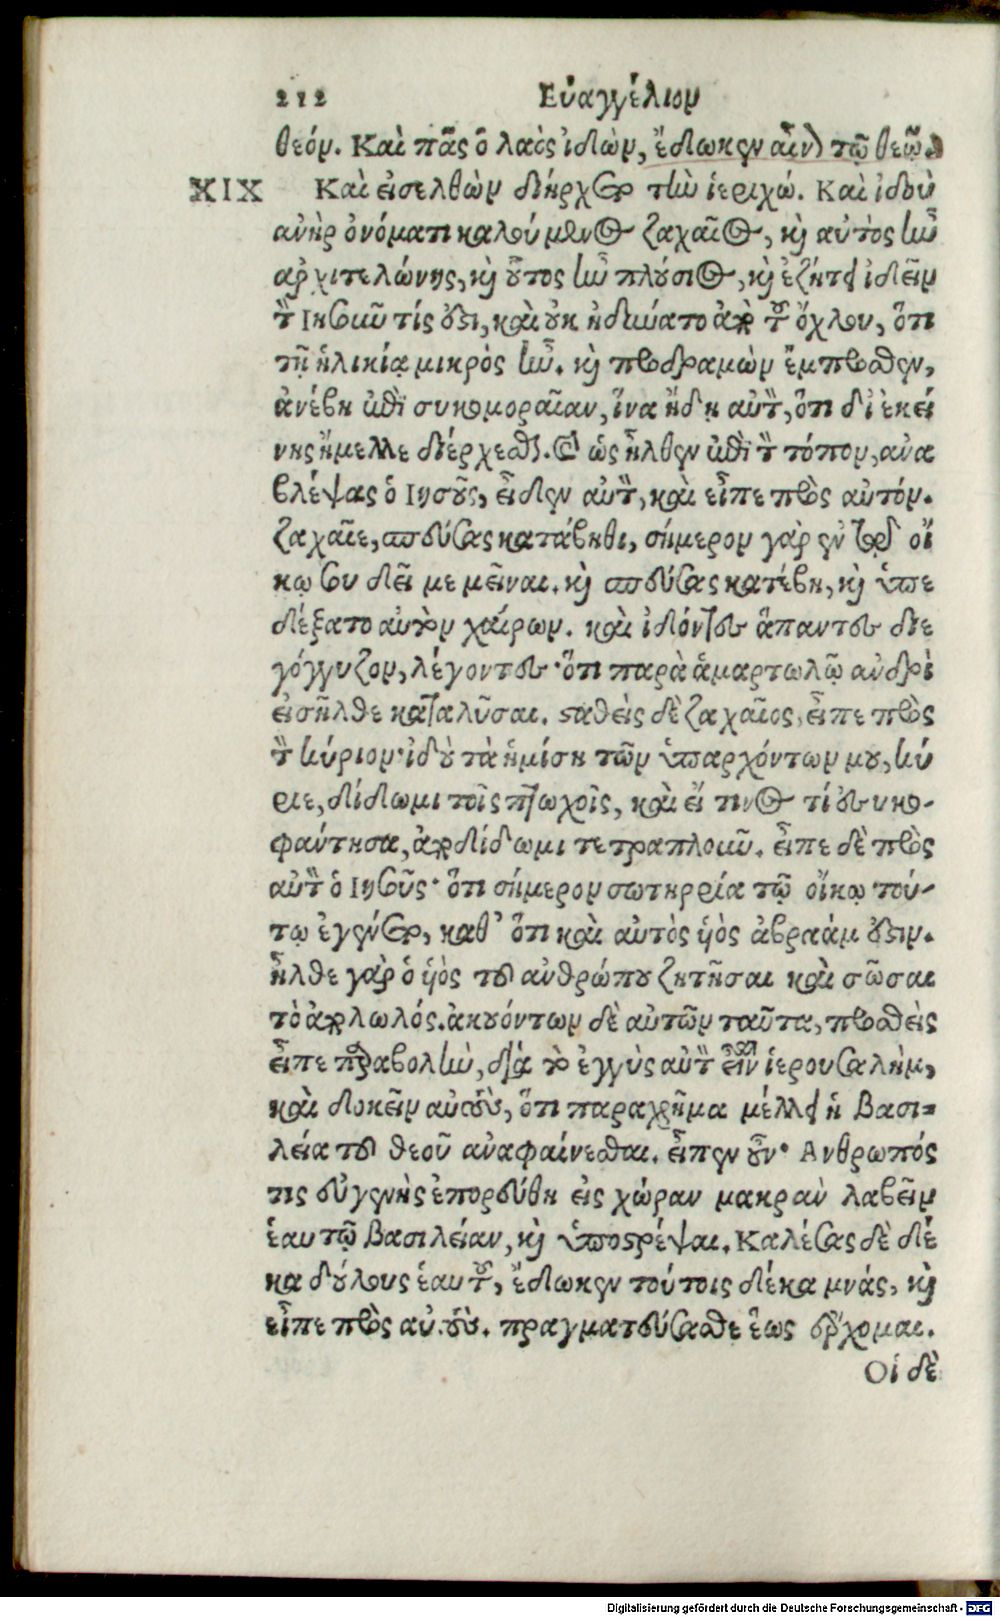 212 Εὐαγγέλιον
θεόν. Καὶ πᾶς ὁ λαὸς ἰδὼν, ἔδωκεν αἶνον τῷ θεῷ.
XIX Καὶ εἰσελθὼν διήρχετο τὴν ἱεριχώ. Καὶ ἰδοὺ
ἀνὴρ ὀνόματι καλούμενος ζαχαῖος, καὶ αὐτὸς ἦν
ἀρχιτελώνης, καὶ οὗτος ἦν πλούσιος, καὶ ἐζήτει ἰδεῖν
τὸν Ιησοῦν τίς ἐστι, καὶ οὐκ ἠδύνατο ἀπὸ τοῦ ὄχλου, ὅτι
τῇ ἡλικίᾳ μικρὸς ἦν. καὶ προδραμὼν ἔμπροσθεν,
ἀνέβη ἐπὶ συκομοραῖαν, ἵνα ἤδη αὐτὸν, ὅτι δι ἐκεί
νης ἤμελλε διέρχεσθαι. Καὶ ὡς ἦλθεν ἐπὶ τὸν τόπον, ἀνα
βλέψας ὁ Ιησοῦς, εἶδεν αὐτὸν, καὶ εἶπε πρὸς αὐτόν.
ζαχαῖε, σπεύσας κατάβηθι, σήμερον γὰρ ἐν τῷ οἴ
κῳ σου δεῖ με μεῖναι. καὶ σπεύσας κατέβη, καὶ ὑπε
δέξατο αὐτὸν χαίρων. καὶ ἰδόντες ἅπαντες διε
γόγγυζον, λέγοντες· ὅτι παρὰ ἁμαρτωλῷ ἀνδρὶ
εἰσῆλθε καταλῦσαι. σταθεὶς δὲ ζαχαῖος, εἶπε πρὸς
τὸν κύριον· ἰδοὺ τὰ ἡμίση τῶν ὑπαρχόντων μου, κύ
ριε, δίδωμι τοῖς πτωχοῖς, καὶ εἴ τινος τί ἐσυκο-
φάντησα, ἀποδίδωμι τετραπλοῦν. εἶπε δὲ πρὸς
αὐτὸν ὁ Ιησοῦς· ὅτι σήμερον σωτηρρία τῷ οἴκῳ τού-
τῳ ἐγένετο, καθ’ ὅτι καὶ αὐτὸς ὑιὸς ἀβραάμ ἐστιν.
ἦλθε γὰρ ὁ ὑιὸς τοῦ ἀνθρώπου ζητῆσαι καὶ σῶσαι
τὸ ἀπολωλός. ἀκουόντων δὲ αὐτῶν ταῦτα, προσθεὶς
εἶπε παραβολὴν, διὰ τὸ ἐγγὺς αὐτὸν εἶναι ἱερουσαλὴμ,
καὶ δοκεῖν αὐτοὺς, ὅτι παραχρῆμα μέλλει ἡ βασι-
λεία τοῦ θεοῦ ἀναφαίνεσθαι. εἶπεν οὖν· Ανθρωπός
τις εὐγενὴς ἐπορεύθη εἰς χώραν μακρὰν λαβεῖν
ἑαυτῷ βασιλείαν, καὶ ὑποστρέψαι. Καλέσας δὲ δέ
κα δούλους ἑαυτοῦ, ἔδωκεν τούτοις δέκα μνάς, καὶ
εἶπε πρὸς αὐτούς. πραγματεύσασθε ἕως ἔρχομαι.
Οἱ δὲ
Digitalisierung gefördert durch die Deutsche Forschungsgemeinschaft - DFG